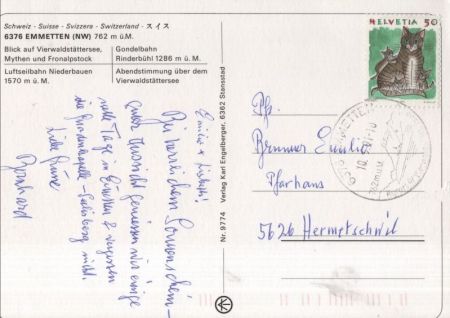 Schweiz - Suisse - Svizzera - Switzerland - スイス
6376 EMMETTEN (NW) 762 m ü.M.
Blick auf Vierwaldstättersee,
Mythen und Fronalpstock
Gondelbahn
Rinderbühl 1286 m ü.M.
Luftseilbahn Niederbauen
1570 m ü.M.
Abendstimmung über dem
Vierwaldstättersee
HELVETIA 50
Emilio
Bei herrlichem Sonnenschein
Aussicht geniessen wir einige
Tage in Emetten & vergessen
die Gnadenkapelle Seelisberg nicht.
Liebe Grüsse
Bernhard
Nr. 9774 Verlag Karl Engelberger, 6362 Stansstad
Pfr.
Brunner Emilio
Pfarrhaus
5626 Hermetschwil